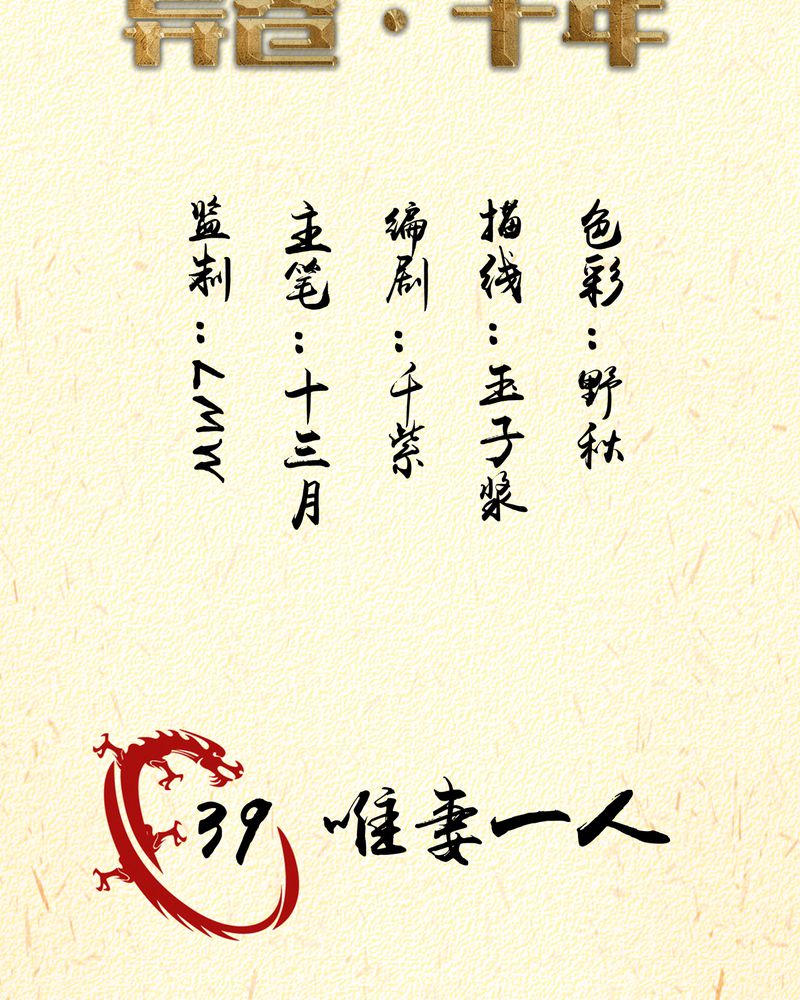 ·千年
监制：
主笔：十三月
编剧：千紫
描线：玉子浆
色彩：野秋
39 唯妻一人